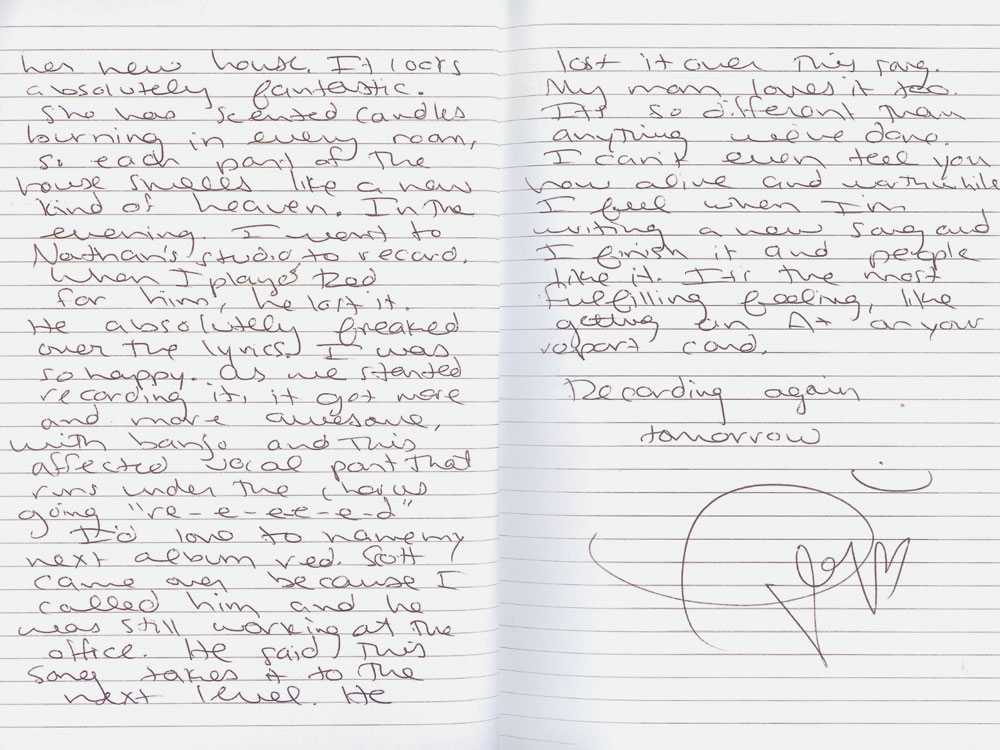 her new house. It looks
absolutely fantastic.
She has scented candles
burning in every room,
so each part of the
house smells like a new
kind of heaven. In the
evening, I went to
Nathan's studio to record.
When I played Red
for him, he lost it.
He absolutely freaked
over the lyrics. I was
so happy. As we started
recording it, it got more
and more awesome,
with banjo and this
affected vocal part that
runs under the chorus
going "re-e-e-e-e-d"
I'd love to name my
next album red. Scott
came over because I
called him and he
was still working at the
office. He said this
song takes it to the
next level. He
lost it over this song.
My mom loves it too.
It's so different than
anything we've done.
I can't even tell you
how alive and worthwhile
I feel when I'm
writing a new song and
I finish it and people
like it. It's the most
fulfilling feeling, like
getting an A+ on your
report card.
Recording again
tomorrow